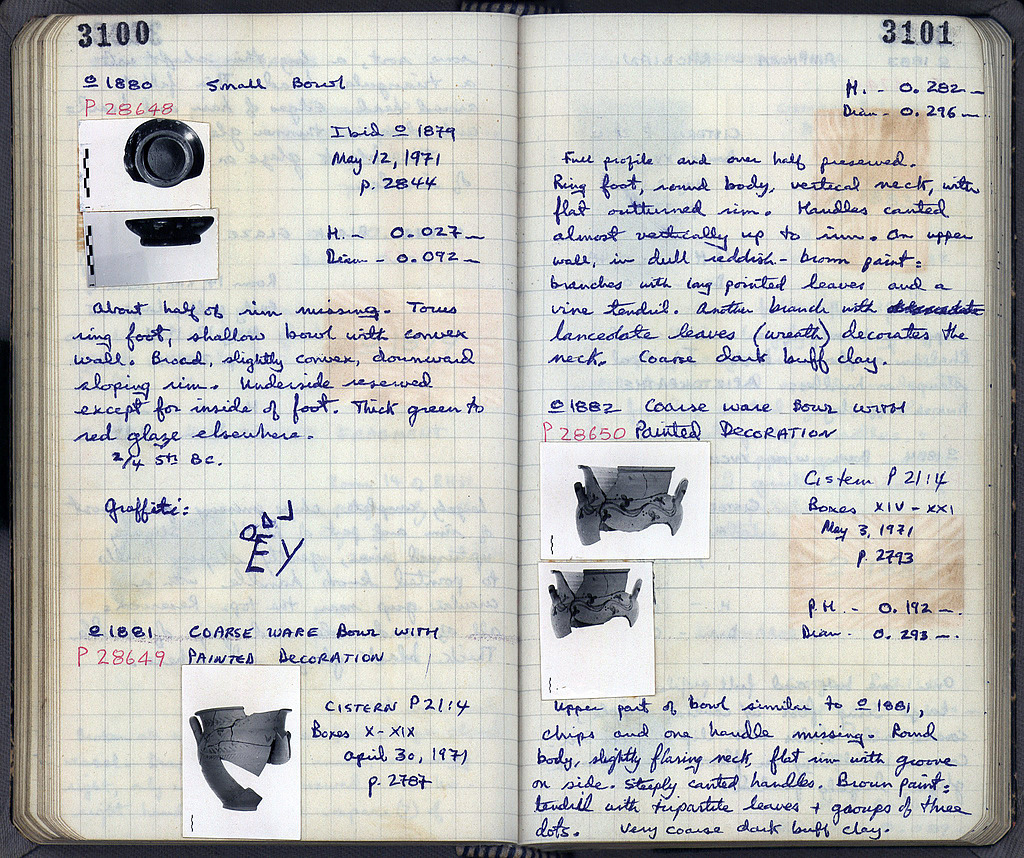 3100
Ω 1880 Small Bowl
P 28648
Ibid Ω 1879
May 12, 1971
p. 2844
H. - 0.027
Diam - 0.092
About half of rim missing. Torus
ring foot, shallow bowl with convex
wall. Broad, slightly convex, downward
sloping rim. Underside reserved
except for inside of foot. Thick green to
red glaze elsewhere.
2/4 5th BC.
Graffiti:
Ω 1881 COARSE WARE BOWL WITH
P 28649 PAINTED DECORATION
CISTERN P 21:4
Boxes X-XIX
April 30, 1971
p. 2787
3101
H. - 0.282
Diam - 0.296
Full profile and over half preserved.
Ring foot, round body, vertical neck, with
flat outturned rim. Handles canted
almost vertically up to rim. On upper
wall, in dull reddish-brown paint:
branches with long pointed leaves and a
vine tendril. Another branch with
lanceolate leaves (wreath) decorates the
neck. Coarse dark buff clay.
Ω 1882 COARSE WARE BOWL WITH
P 28650 Painted DECORATION
Cistern P 21:4
Boxes XIV - XXI
May 3, 1971
p. 2793
P.H. - 0.192
Diam. 0.293
Upper part of bowl similar to Ω 1881,
chips and one handle missing. Round
body, slightly flaring neck, flat rim with groove
on side. Steeply canted handles. Brown paint:
tendril with tripartite leaves + groups of three
dots. Very coarse dark buff clay.